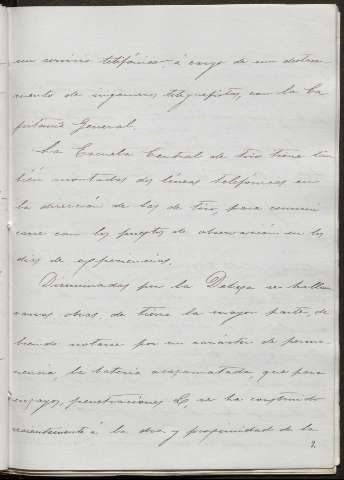 un servicio telefónico á cargo de un destaca-
mento de ingenieros telegrafistas, con la Ca-
pitanía General.
La Escuela Central de tiro tiene tam-
bién montadas dos líneas telefónicas en
la dirección de las de tiro, para comuni-
carse con los puestos de observación en los
días de experiencias.
Diseminadas por la Dehesa se hallan
varias obras, de tierra la mayor parte, de-
biendo notarse por su carácter de perma-
nencia, la batería acasamatada, que para
ensayos, penetraciones &, se ha construido
recientemente á la dra. y proximidad de la
9.